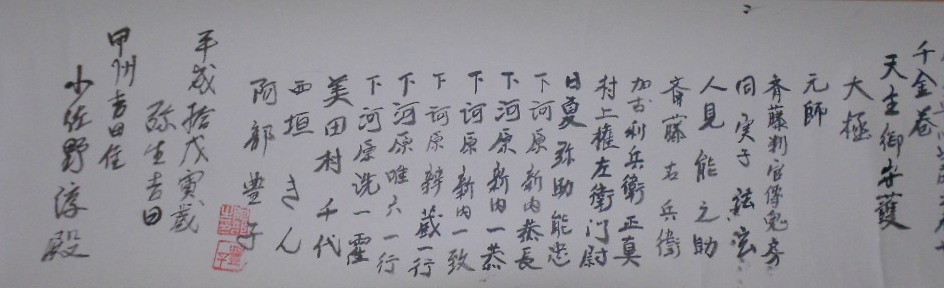 千金巻
天主御安護
大極
元師
斉藤判官傳鬼房
同実子法玄
人見能之助
斉藤右兵衛
加古利兵衛正真
村上権左衛門尉
日夏弥助能忠
下河原新内恭長
下河原新内一恭
下河原新内一致
下河原辨蔵一行
下河原唯六一行
下河原洗一霊
美田村千代
西垣きん
阿部豊子
平成拾戊寅歳
弥生吉日
甲州吉田住
小佐野淳殿